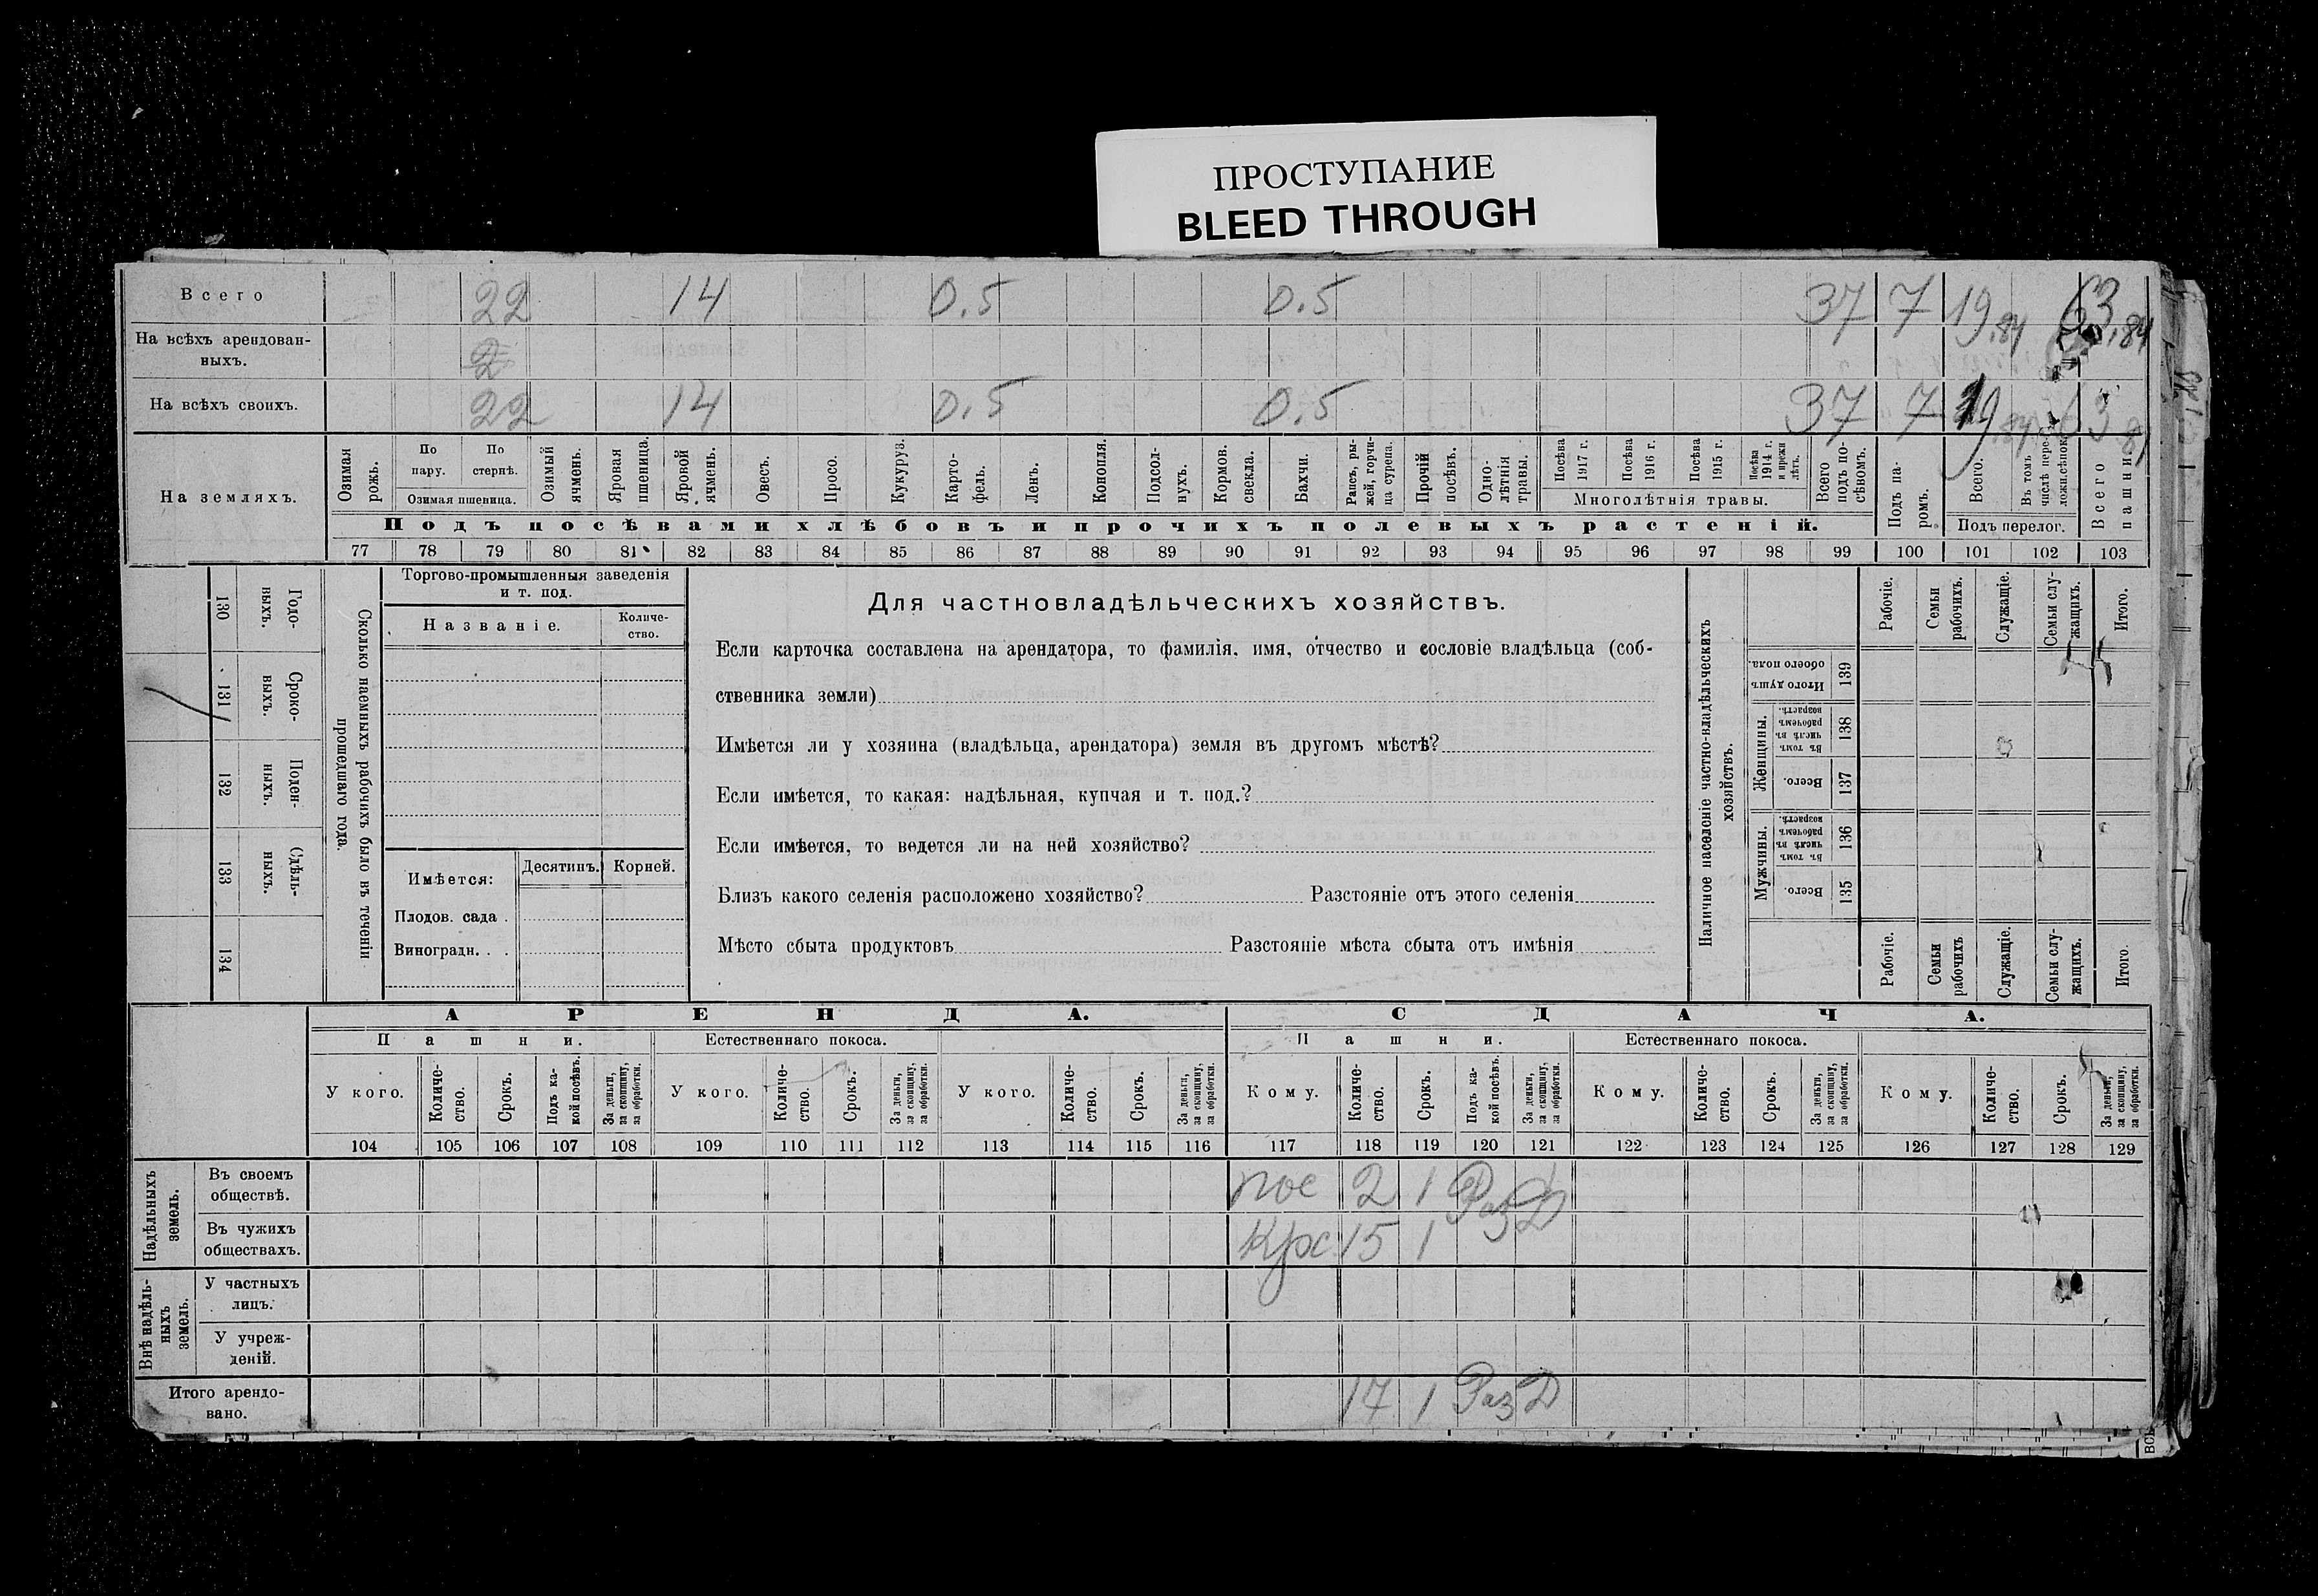 ПРОСТУПАНИЕ
BLEED THROUGH
Всего 22 14 0.5 0.5 37 7 19,84 63,84
На всѣхъ арендован-
ныхъ.
На всѣхъ своихъ. 22 14 0.5 0.5 37 7 19,84 63
На земляхъ.
Озимая рожь.
По пару.
По стернѣ.
Озимая пшеница.
Озимый ячмень.
Яровая пшеница.
Яровой ячмень.
Овесъ.
Просо.
Кукуруз.
Карто-
фель.
Ленъ.
Конопля.
Подсол-
нухъ.
Кормов. свекла.
Бахчи.
Рапсъ, ры-
жей, горчи-
ца сурепа.
Прочій посѣвъ.
Одно-
лѣтнія травы.
Посѣва 1917 г.
Посѣва 1916 г.
Посѣва 1915 г.
Посѣва 1914 г. и прежн лѣтъ.
Многолѣтнія травы.
Всего подъ по-
сѣвомъ.
Подъ па-
ромъ.
Всего.
Въ томъ числѣ пере-
ложн.сѣнокъ
Подъ перелог.
Всего пашни
Подъ посѣвами хлѣбовъ и прочихъ полевыхъ растеній.
77 78 79 80 81 82 83 84 85 86 87 88 89 90 91 92 93 94 95 96 97 98 99 100 101 102 103
130 Годо-
выхъ.
131 Сроко-
выхъ.
132 Поден-
ныхъ.
133 Сдѣль-
ныхъ.
134
Сколько наемныхъ рабочихъ было въ теченіи
прошедшаго года.
Торгово-промышленныя заведенія
и т. под.
Названіе.
Количе-
ство.
Имѣется:
Десятинъ.
Корней.
Плодов. сада .
Виноградн. . .
Для частновладѣльческихъ хозяйствъ.
Если карточка составлена на арендатора, то фамилія, имя, отчество и сословіе владѣльца (соб-
ственника земли)
Имѣется ли у хозяина (владѣльца, арендатора) земля въ другомъ мѣстѣ?
Если имѣется, то какая: надѣльная, купчая и т. под.?
Если имѣется, то ведется ли на ней хозяйство?
Близъ какого селенія расположено хозяйство? Разстояніе отъ этого селенія
Мѣсто сбыта продуктовъ Разстояніе мѣста сбыта отъ имѣнія
Наличное населеніе частно-владѣльческихъ
хозяйствъ.
Рабочіе.
Семьи рабочихъ.
Служащіе.
Семьи слу-
жащихъ.
Итого.
Итого душъ обоего пола. 139
Женщины.
Въ томъ числѣ въ рабочемъ возрастѣ. 138
Всего. 137
Мужчины.
Въ томъ числѣ въ рабочемъ возрастѣ. 136
Всего. 135
Рабочіе.
Семьи рабочихъ
Служащіе.
Семьи слу-
жащихъ.
Итого
АРЕНДА. СДАЧА.
Пашни. Естественнаго покоса. Пашни. Естественнаго покоса.
У кого.
Количе-
ство.
Срокъ.
Подъ ка-
кой посѣвъ.
За деньги, за скопщину, за обработки.
У кого.
Количе-
ство.
Срокъ.
За деньги, за скопщину, за обработки.
У кого.
Количе-
ство.
Срокъ.
За деньги, за скопщину, за обработки.
Кому.
Количе-
ство.
Срокъ.
Подъ ка-
кой посѣвъ.
За деньги, за скопщину, за обработки.
Кому.
Количе-
ство.
Срокъ.
За деньги, за скопщину, за обработки.
Кому.
Количе-
ство.
Срокъ.
За деньги, за скопщину, за обработки.
104 105 106 107 108 109 110 111 112 113 114 115 116 117 118 119 120 121 122 123 124 125 126 127 128 129
Надѣльныхъ земель.
Въ своемъ
обществѣ. пос 2 1 Раз Д
Въ чужихъ
обществахъ. Крс 15 1
Внѣ надѣль-
ныхъ земель.
У частныхъ
лицъ.
У учреж-
деній.
Итого арендо-
вано. 17 1 Раз Д